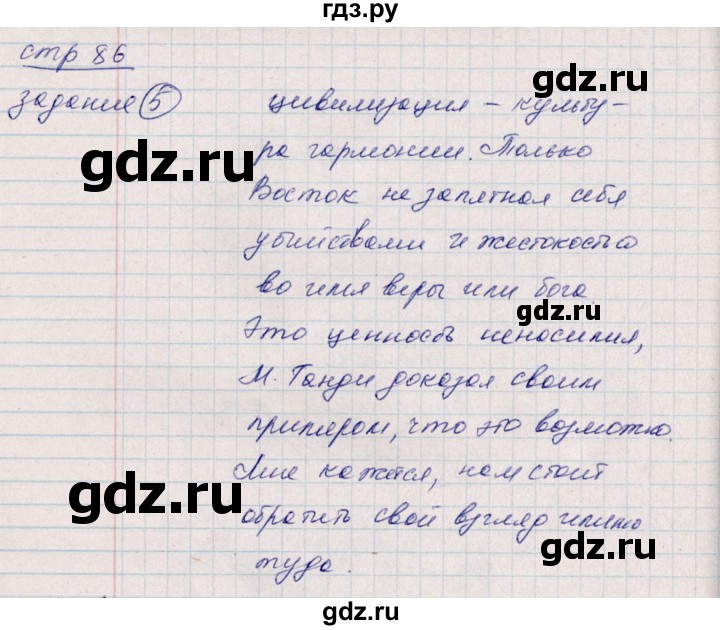 гдз.ру
стр 86
задание 5 цивилизация – культу-
gdz.ru
ра гармонии. Только
gdz.ru
Восток не запятнал себя
убийствами и жестокостью
во имя веры или бога.
gdz.ru
Это ценность ненасилия,
М. Ганди доказал своим
gdz.ru
примером, что это возможно.
Мне кажется, нам стоит
gdz.ru
обратить свой взгляд именно
gdz.ru
туда.
gdz.ru